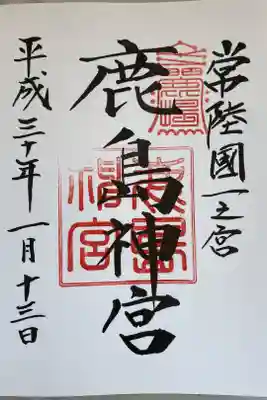 常陸國一之宮
鹿島神宮
平成三十年一月十三日